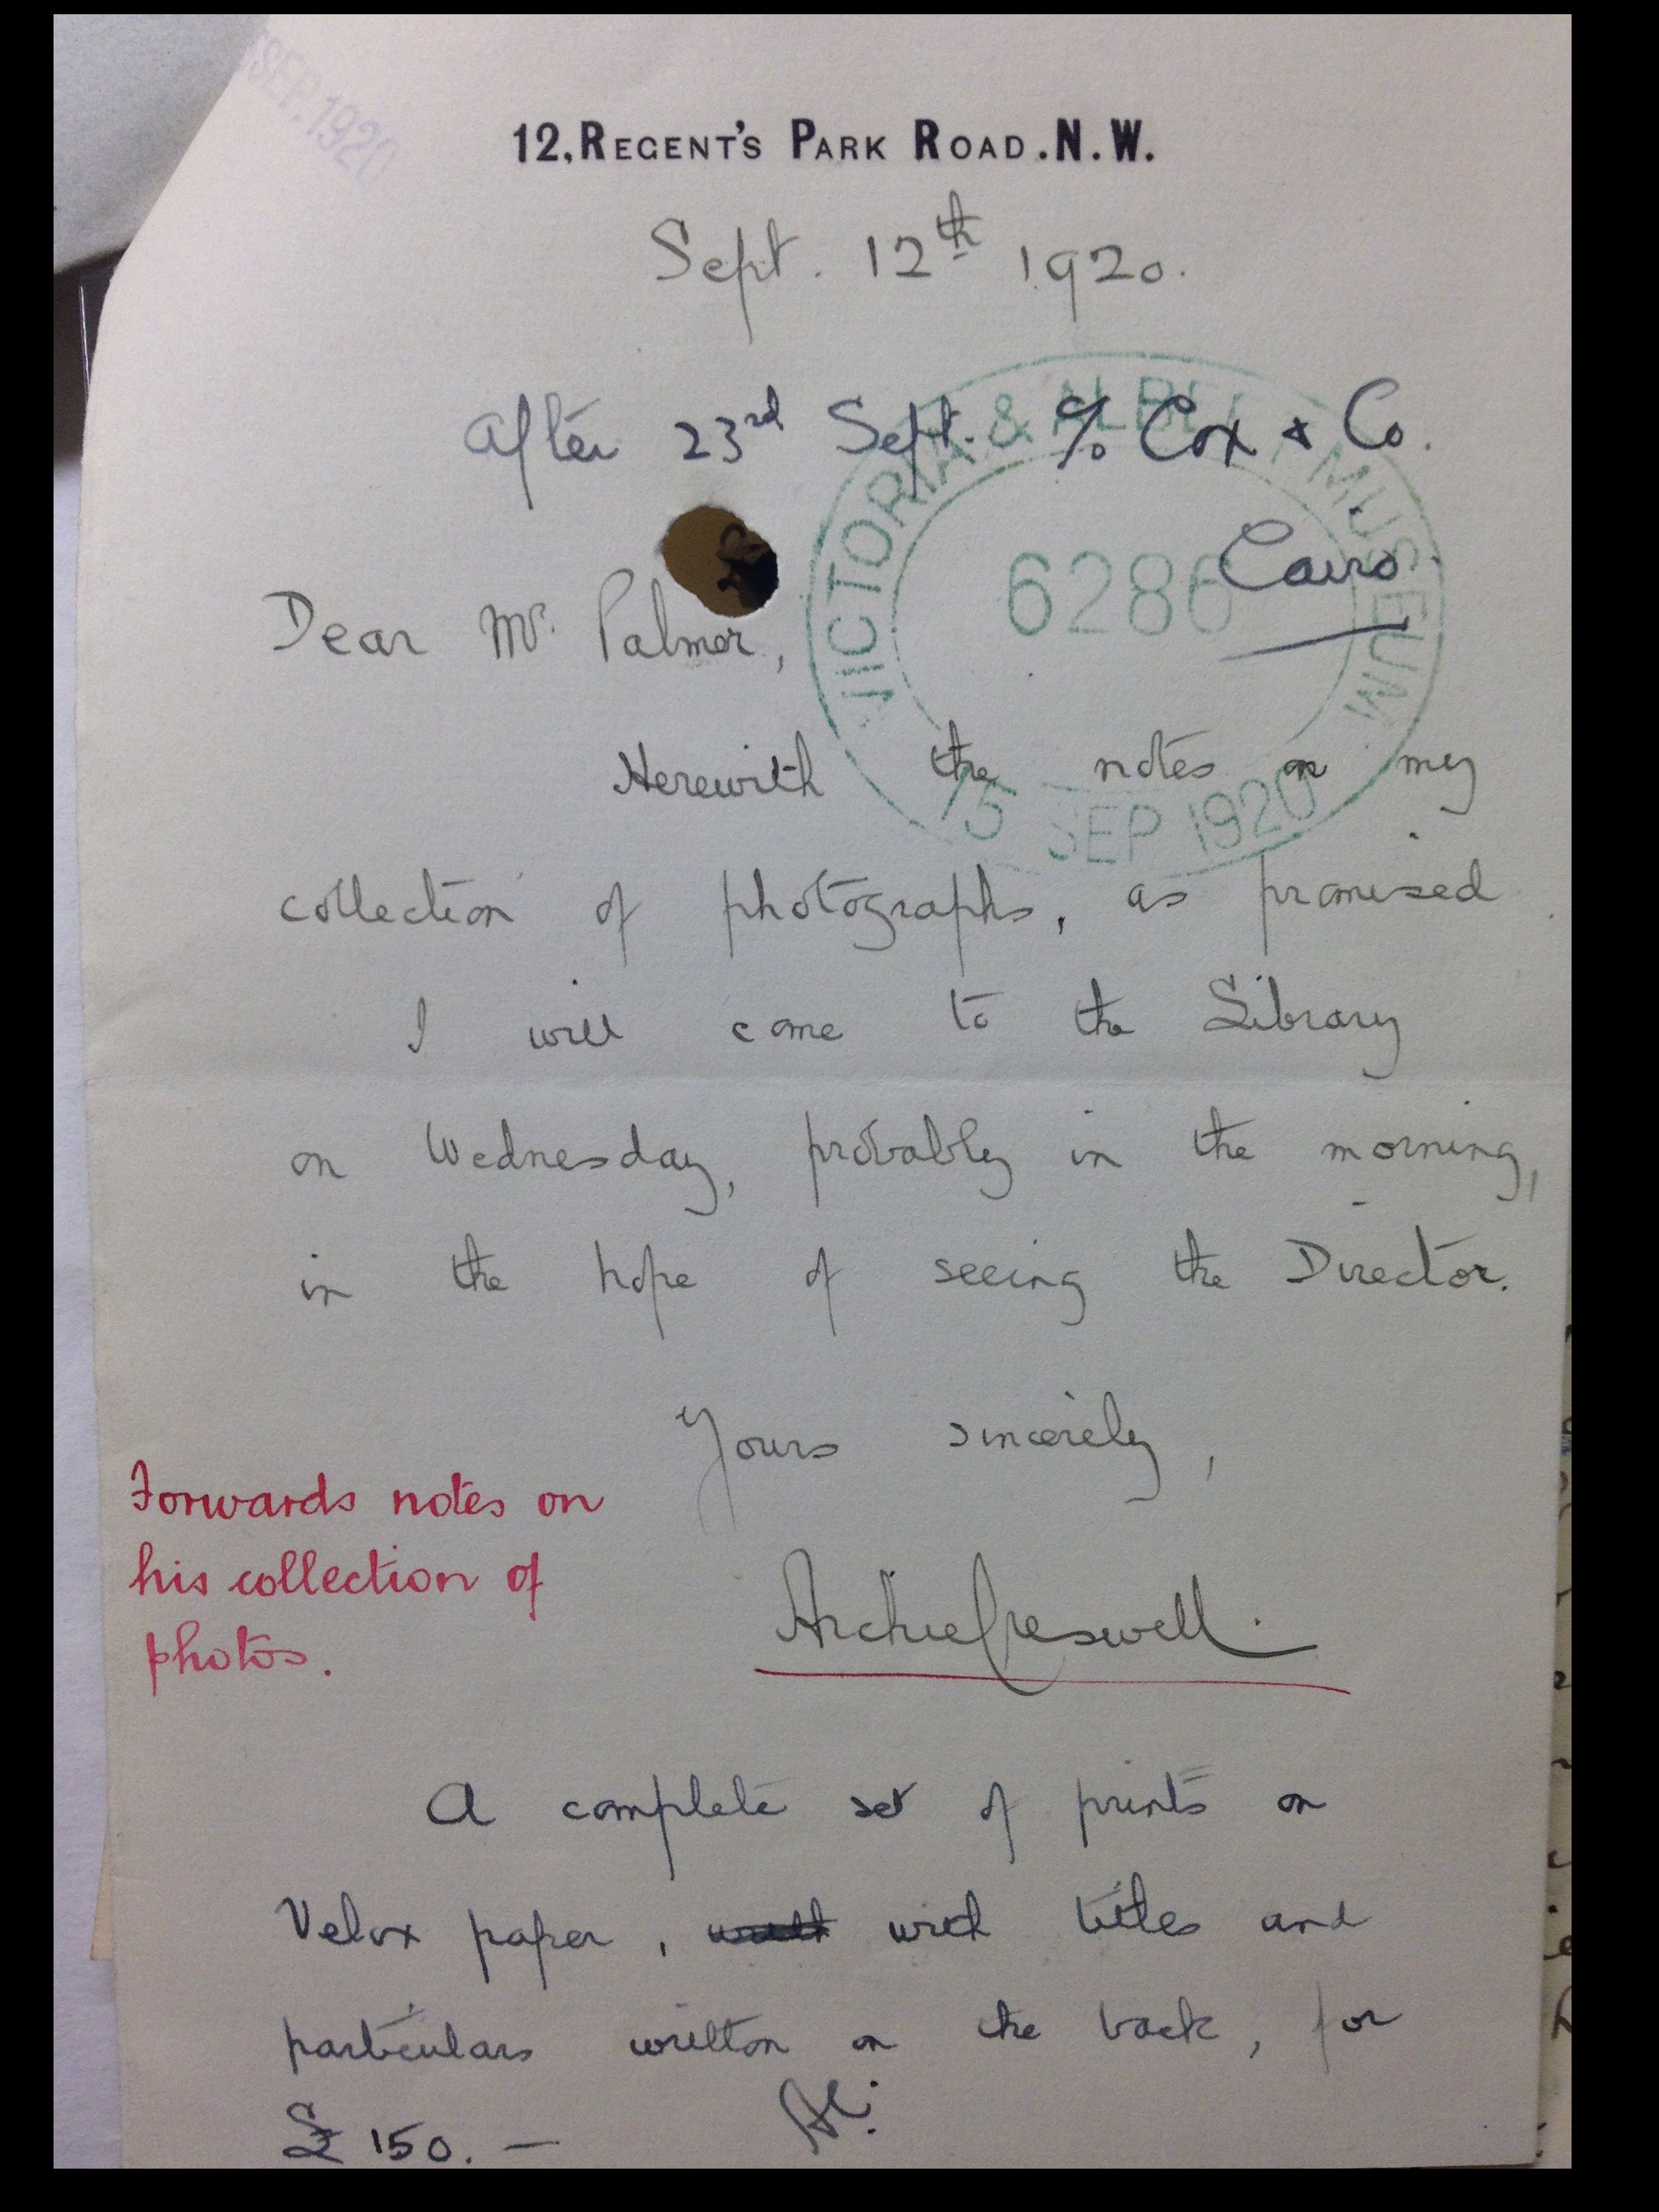 SEP. 1920
12, REGENT'S PARK ROAD. N. W.
Sept. 12th 1920.
After 23rd Sept. c/o Cox & Co.
Cairo
VICTORIA & ALBERT MUSEUM
6286
15 SEP 1920
Dear Mr. Palmer,
Herewith the notes on my
collection of photographs, as promised
I will come to the Library
on Wednesday, probably in the morning,
in the hope of seeing the Director.
Yours sincerely,
Archie Creswell.
Forwards notes on
his collection of
photos.
A complete set of prints on
Velox paper, with titles and
particulars written on the back, for
£150. — AC.